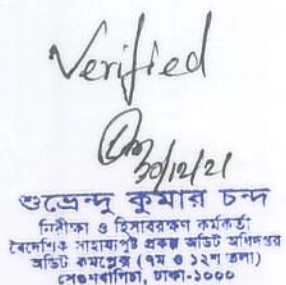 Verified
30/12/21
শুভ্রেন্দু কুমার চন্দ
নিরীক্ষা ও হিসাবরক্ষণ কর্মকর্তা
বৈদেশিক সাহায্যপুষ্ট প্রকল্প অডিট অধিদপ্তর
অডিট কমপ্লেক্স (৭ম ও ১২শ তলা)
সেগুনবাগিচা, ঢাকা-১০০০